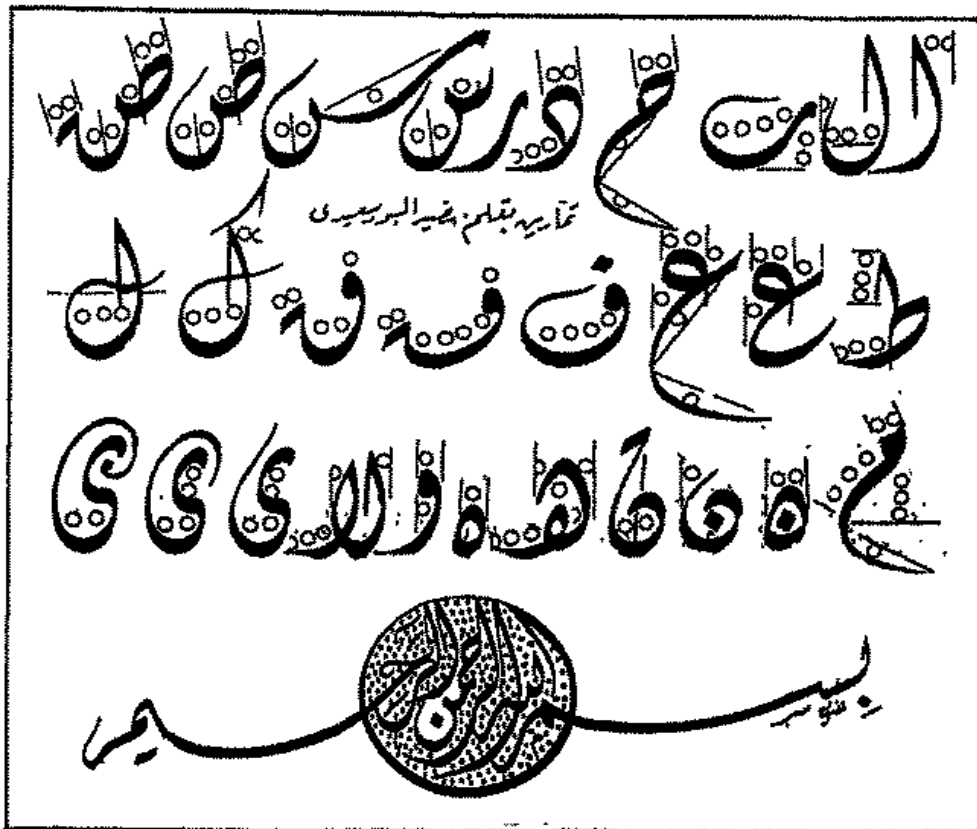 ا ا ب ح د ر س س ص ص
تمارين بقلم خضير البورسعيدى
ط ع ع ف ك ك
م ه ه و لا ى ى ى
بسم الله الرحمن الرحيم